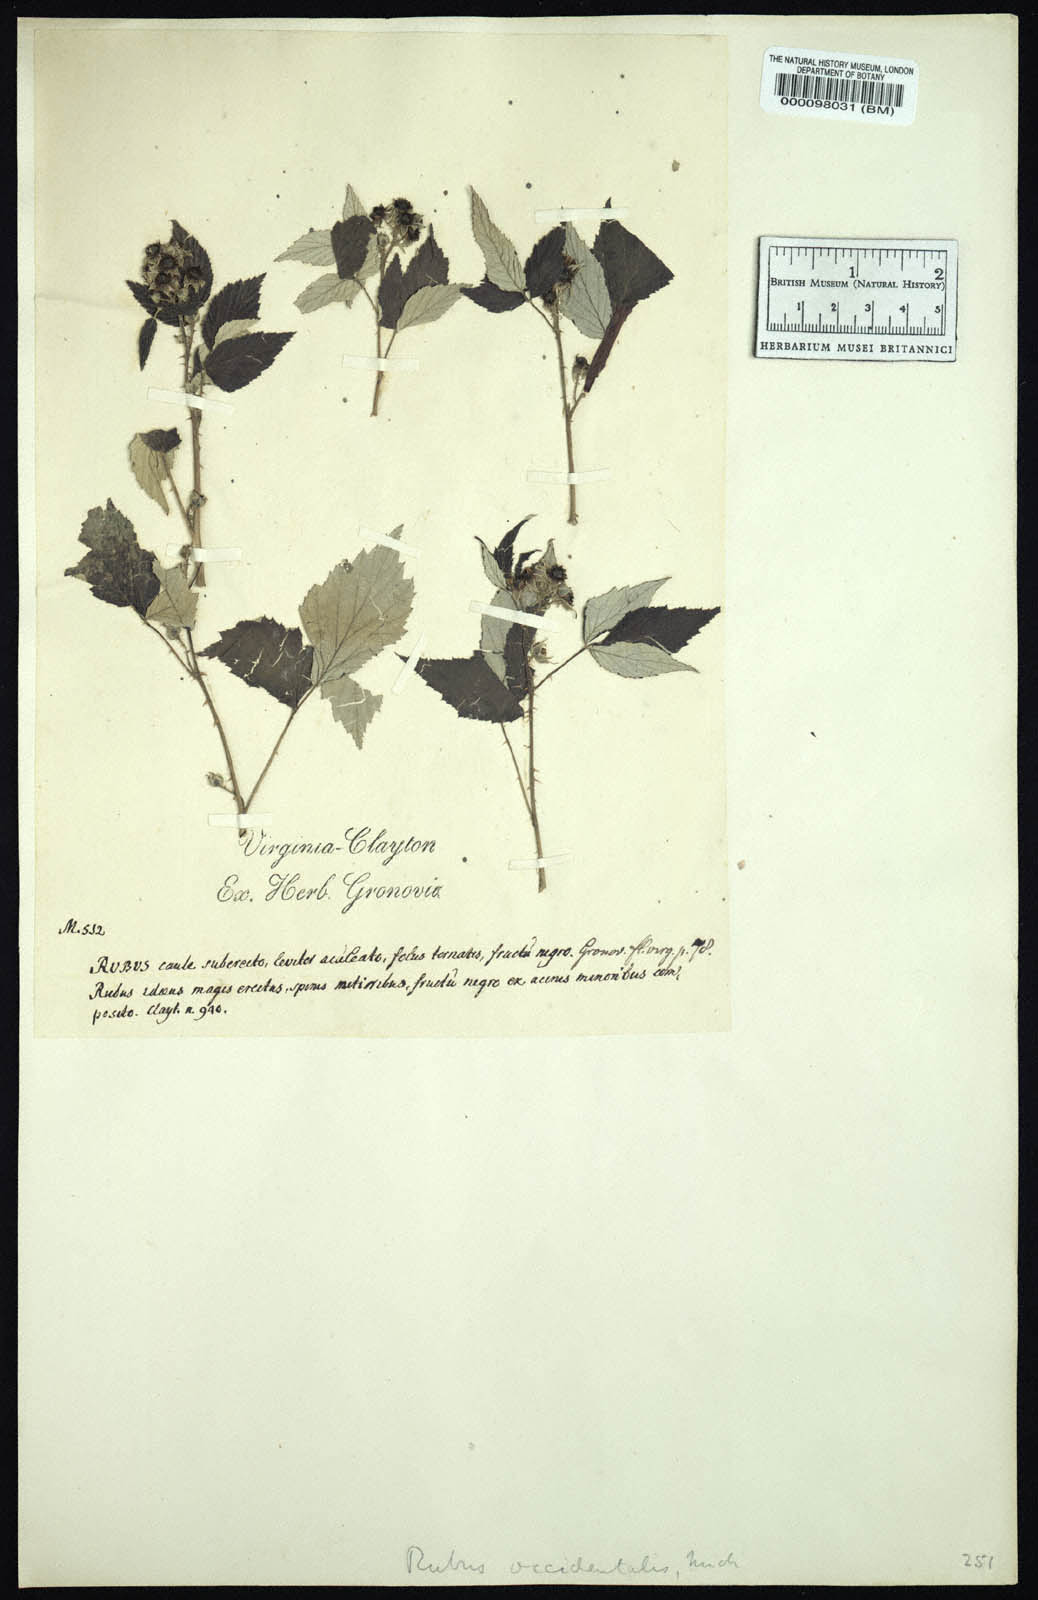 THE NATURAL HISTORY MUSEUM, LONDON
DEPARTMENT OF BOTANY
000098031 (BM)
1 2
BRITISH MUSEUM (NATURAL HISTORY)
1 2 3 4 5
HERBARIUM MUSEI BRITANNICI
Virginia-Clayton
Ex. Herb. Gronovii
M. 532
RUBUS caule suberecto, leviter aculeato, foliis ternatis, fructû nigro. Gronov. fl. virg. p. 78.
Rubus idæus magis erectus, spinis mitioribus, fructû nigro ex acinis minoribus com:
posito. Clayt. n. 940.
Rubus occidentalis,
251